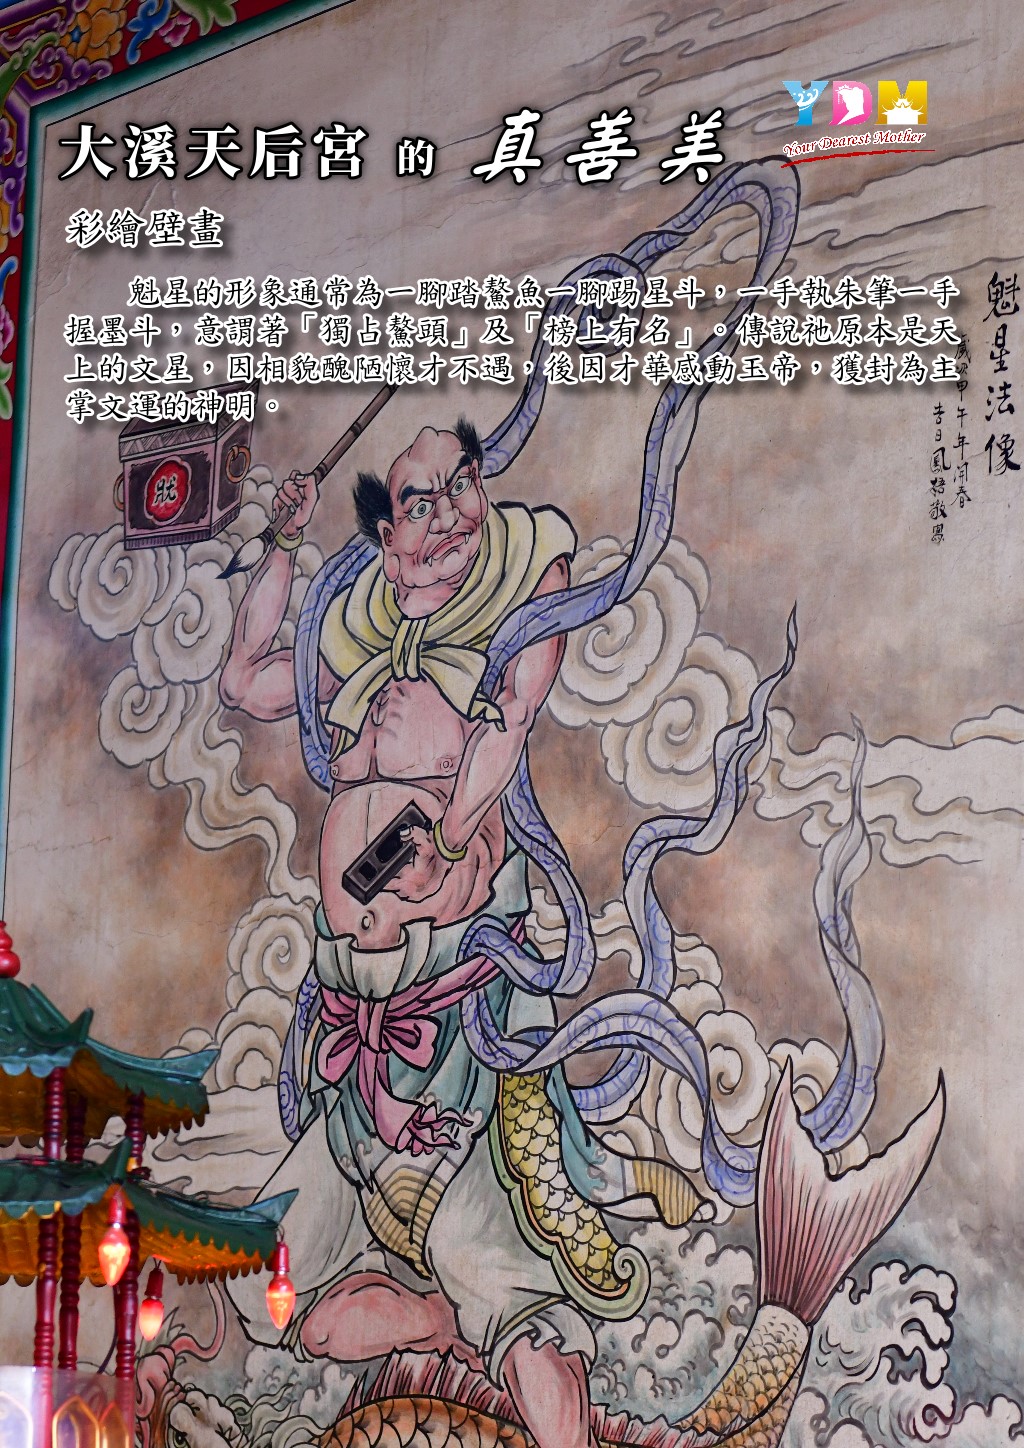 大溪天后宮 的 真善美
YDM
Your Dearest Mother
彩繪壁畫
魁星的形象通常為一腳踏鰲魚一腳踢星斗，一手執朱筆一手
握墨斗，意謂著「獨占鰲頭」及「榜上有名」。傳說祂原本是天
上的文星，因相貌醜陋懷才不遇，後因才華感動玉帝，獲封為主
掌文運的神明。
魁星法像
歲次甲午年開春
吉日